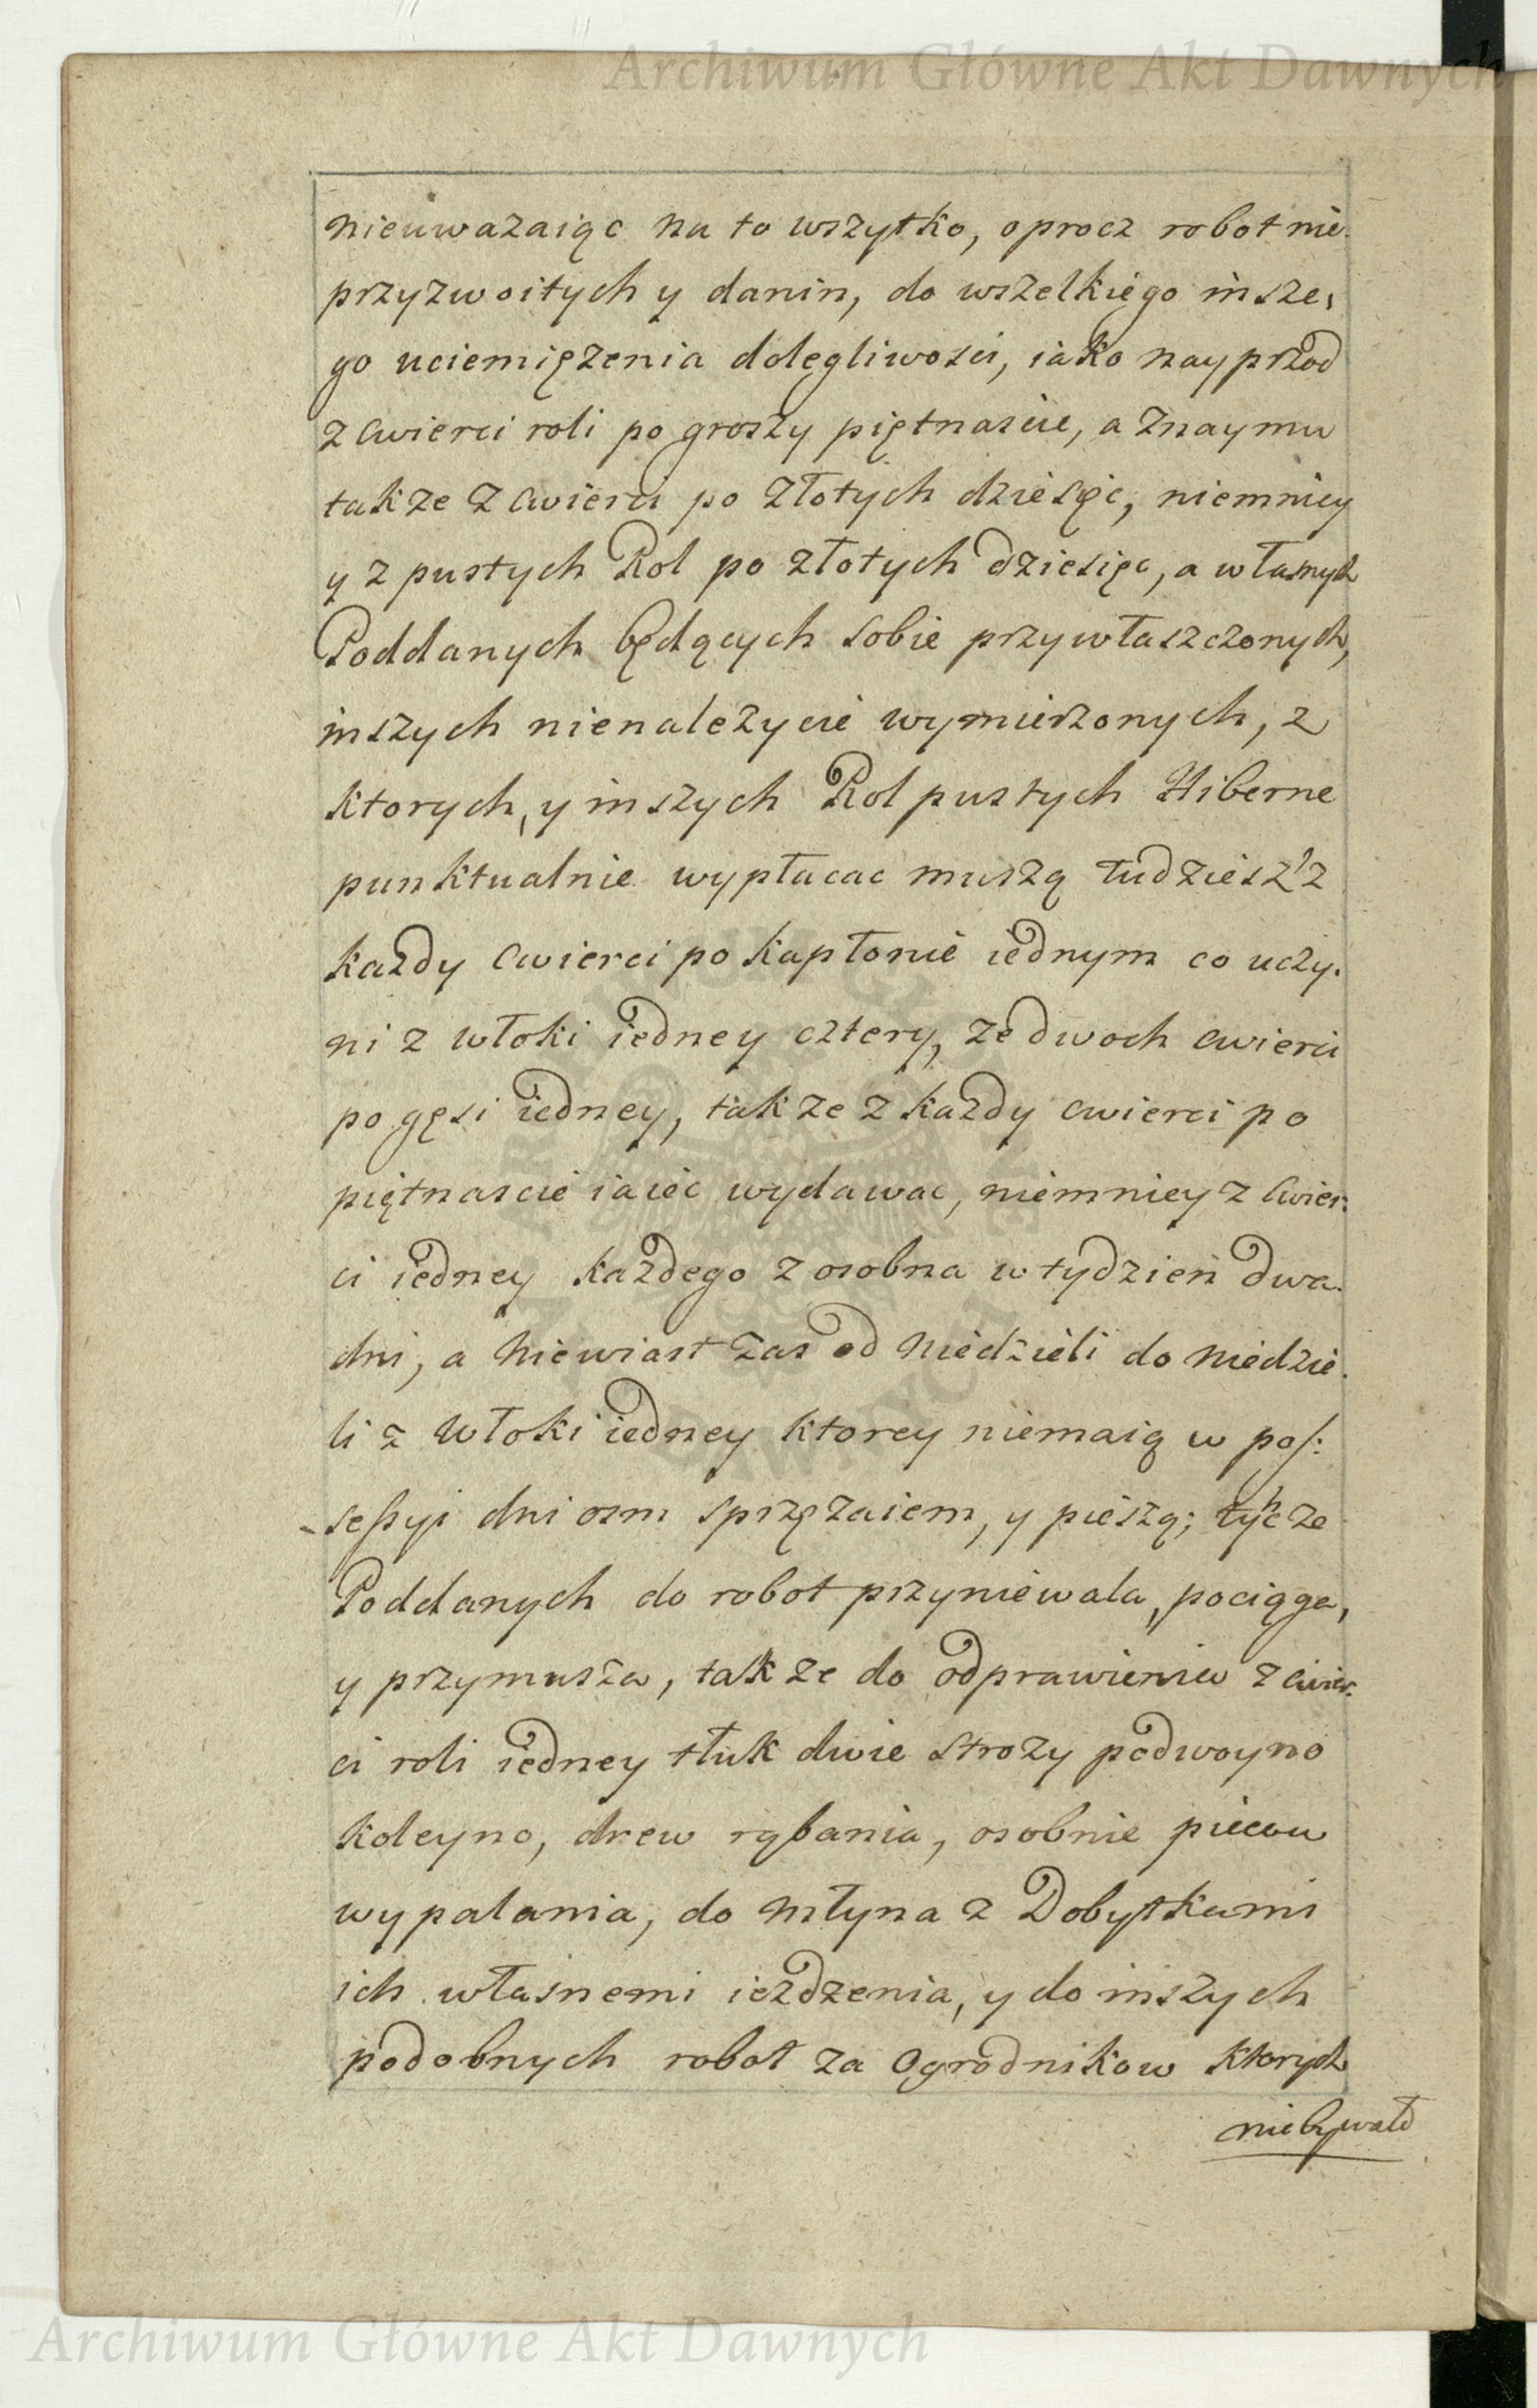 Archiwum Główne Akt Dawnych
nieuwazaiąc na to wszytko, oprocz robot nie
przyzwoitych y danin, do wszelkiego insze,
go uciemięzenia dolegliwosci, iako nayprzod
z cwierci roli po groszy piętnascie, a z naymu
takze z cwierci po złotych dziesięc, niemniey
y z pustych Rol po złotych dziesięc, a własnych
Poddanych będących sobie przywłaszczonych,
inszych nienalezycie wymierzonych, z
ktorych, y inszych Rol pustych Hiberne
punktualnie wypłacac muszą tudziesz z
kazdy cwierci po kapłonie iednym co uczy.
ni z włoki iedney cztery, ze dwoch cwierci
po gęsi iedney, takze z kazdy cwierci po
piętnascie iaiec wydawac, niemniey z cwier:
ci iedney kazdego z osobna w tydzien dwa.
dni, a niewiast zas od niedzieli do niedzie.
li z włoki iedney ktorey niemaią w pos:
sessyi dni osm sprzęzaiem, y pieszą; tychze
Poddanych do robot przyniewala, pociąga,
y przymusza, takze do odprawienia z cwier.
ci roli iedney tłuk dwie strozy podwoyno
koleyno, drew rąbania, osobnie piecow
wypalania, do młyna z Dobytkami
ich własnemi iezdzenia, y do inszych
podobnych robot za Ogrodnikow ktorych
niebywało
Archiwum Główne Akt Dawnych